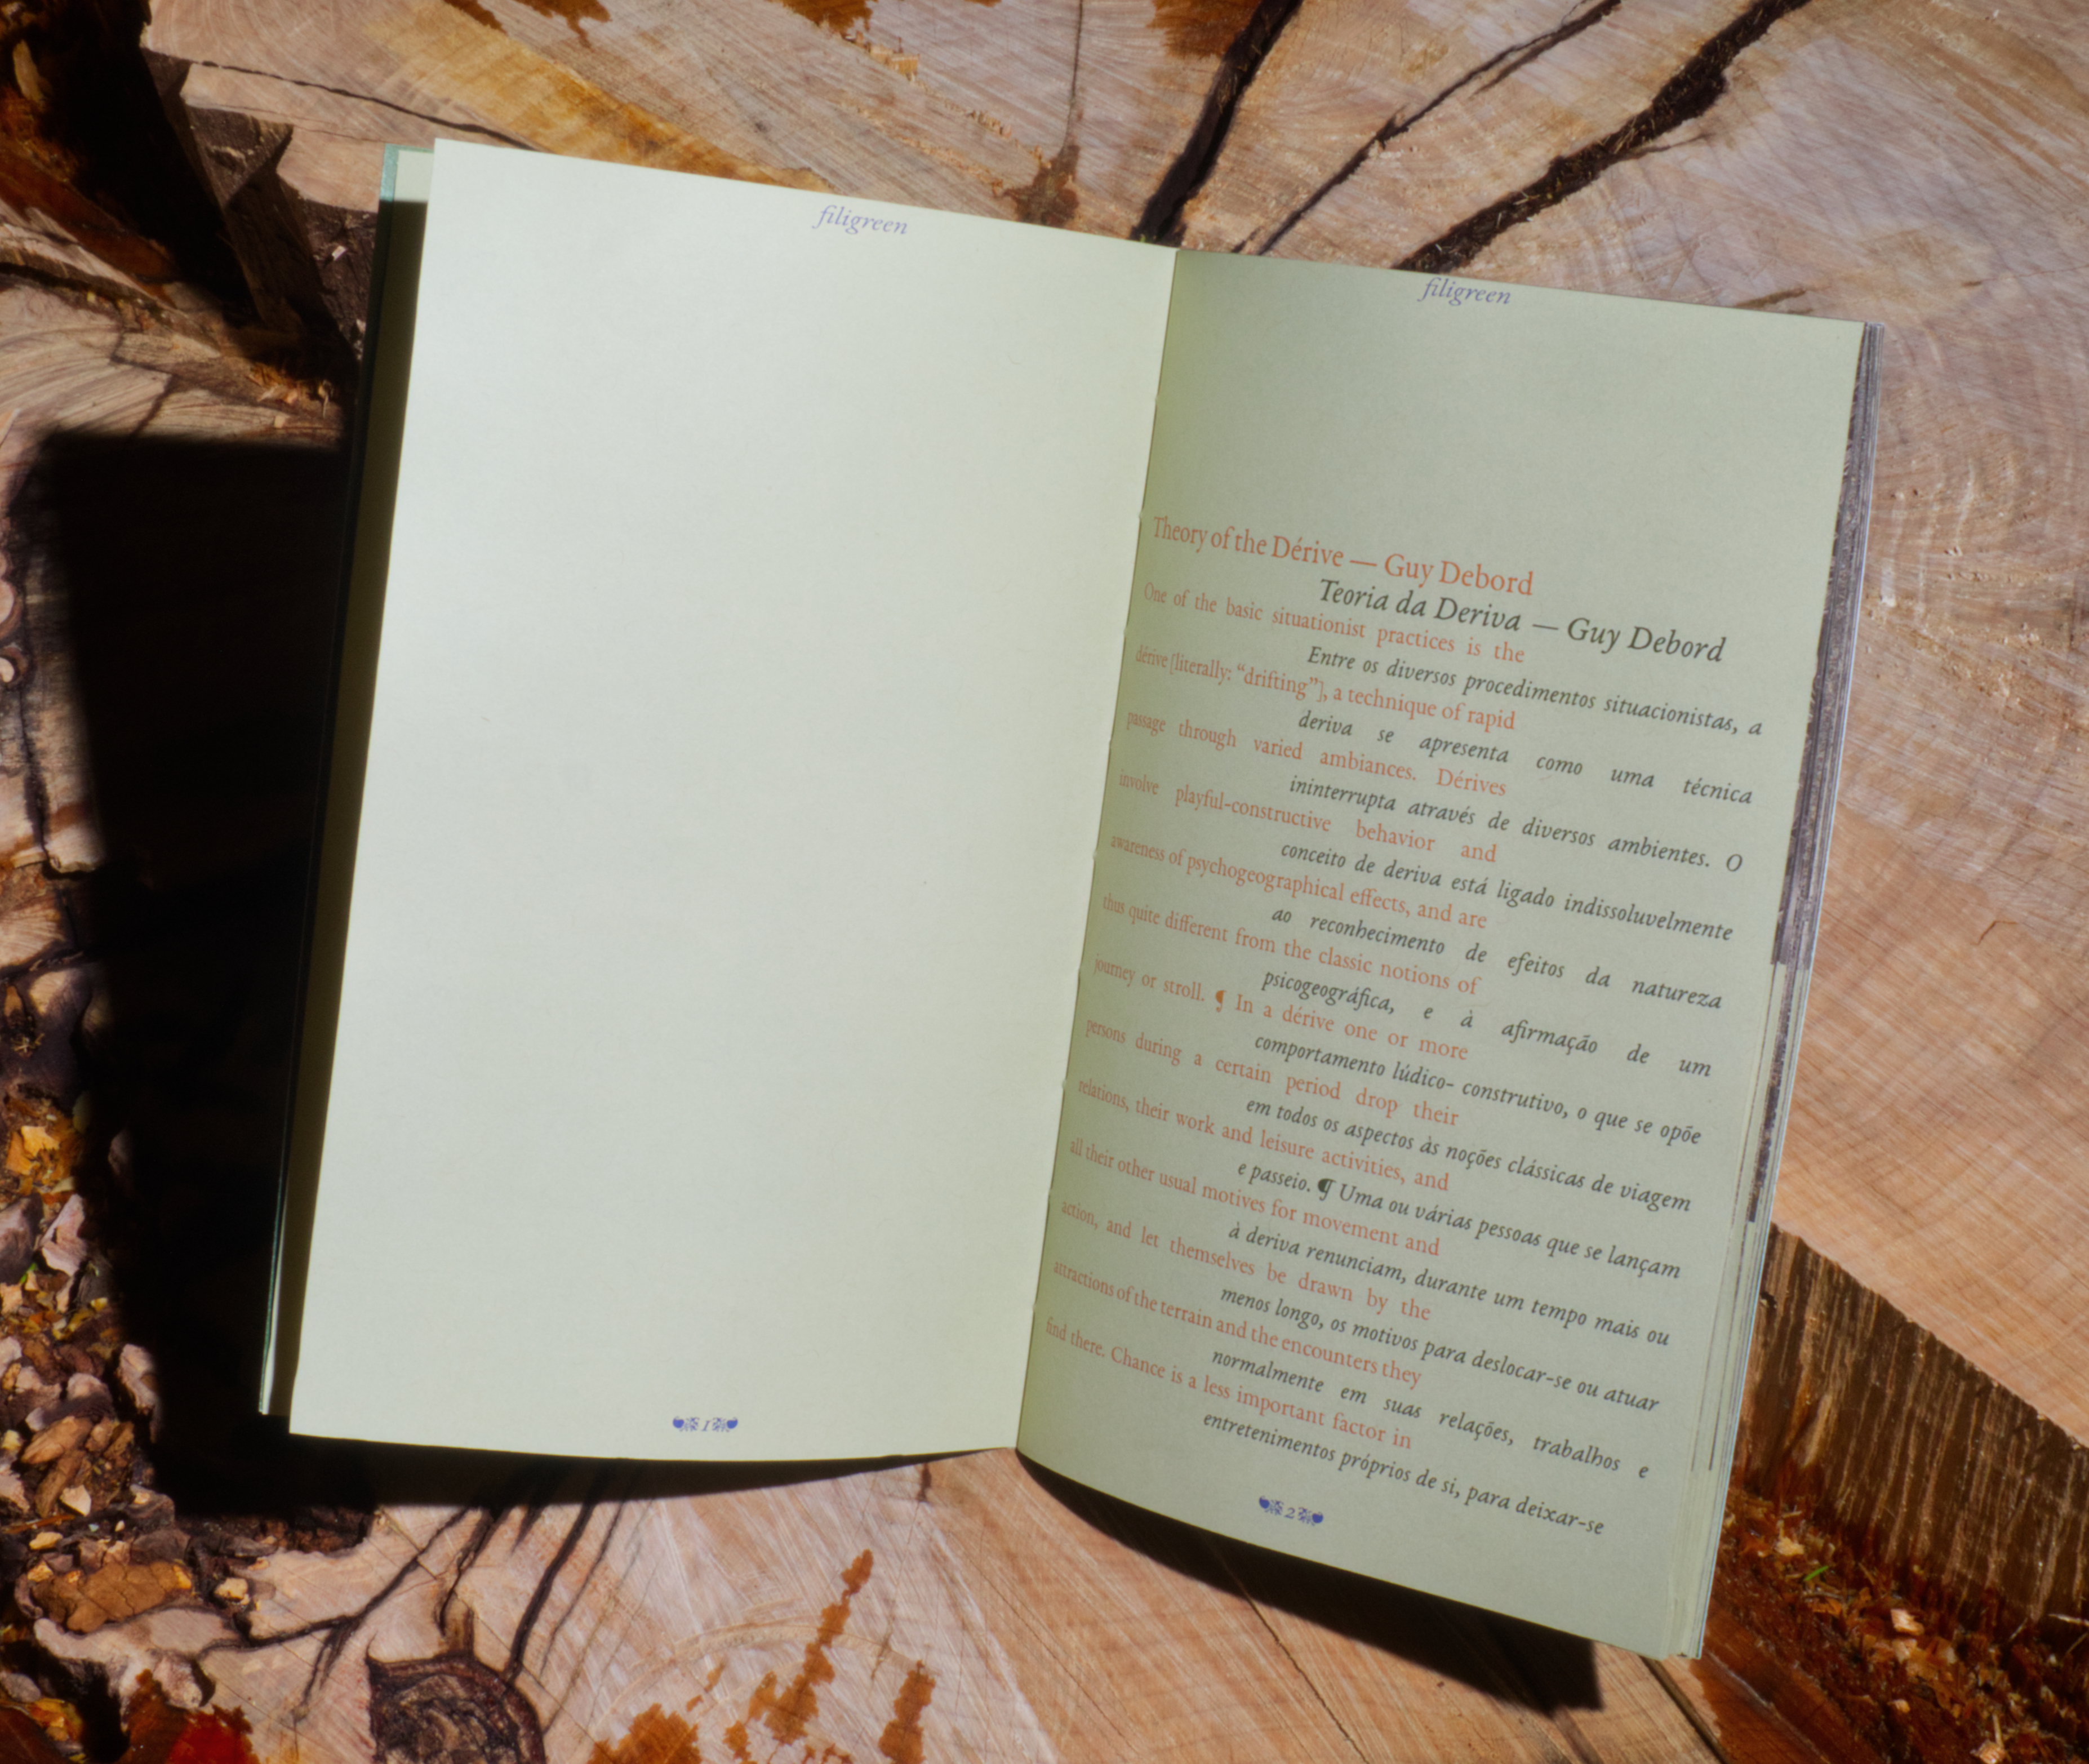 filigreen
1
filigreen
Theory of the Dérive — Guy Debord
Teoria da Deriva — Guy Debord
One of the basic situationist practices is the
Entre os diversos procedimentos situacionistas, a
dérive [literally: “drifting”], a technique of rapid
deriva se apresenta como uma técnica
passage through varied ambiances. Dérives
ininterrupta através de diversos ambientes. O
involve playful-constructive behavior and
conceito de deriva está ligado indissoluvelmente
awareness of psychogeographical effects, and are
ao reconhecimento de efeitos da natureza
thus quite different from the classic notions of
psicogeográfica, e à afirmação de um
journey or stroll. ¶ In a dérive one or more
comportamento lúdico- construtivo, o que se opõe
persons during a certain period drop their
em todos os aspectos às noções clássicas de viagem
relations, their work and leisure activities, and
e passeio. ¶ Uma ou várias pessoas que se lançam
all their other usual motives for movement and
à deriva renunciam, durante um tempo mais ou
action, and let themselves be drawn by the
menos longo, os motivos para deslocar-se ou atuar
attractions of the terrain and the encounters they
normalmente em suas relações, trabalhos e
find there. Chance is a less important factor in
entretenimentos próprios de si, para deixar-se
2